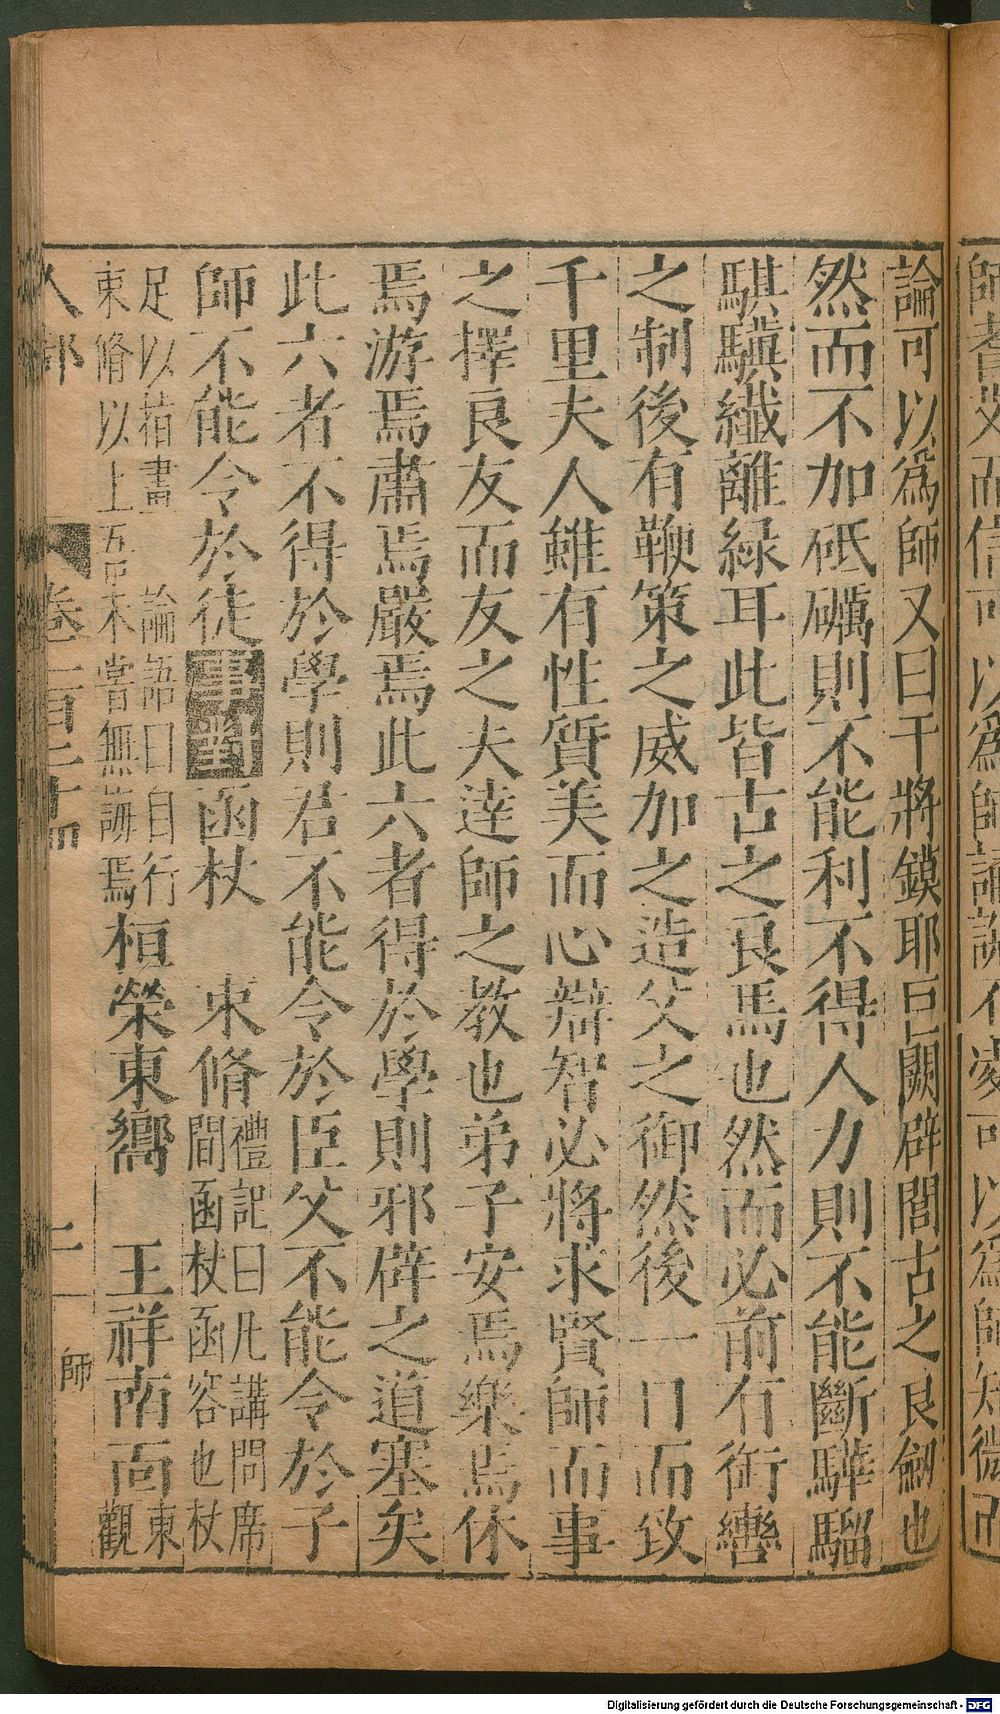 論可以爲師又曰干將鏌耶巨闕辟閭古之良劒也
然而不加砥礪則不能利不得人力則不能斷驊騮
騏驥纎離綠耳此皆古之良馬也然而必前有銜轡
之制後有鞭策之威加之造父之御然後一日而致
千里夫人雖有性質美而心辯智必將求賢師而事
之擇良友而友之夫逹師之教也弟子安焉樂焉休
焉游焉肅焉嚴焉此六者得於學則邪辟之道塞矣
此六者不得於學則君不能令於臣父不能令於子
師不能令於徒事對函杖 束脩禮記曰凡講問席
間函杖函容也杖
足以指畫 論語曰自行
束脩以上吾未嘗無誨焉桓榮東嚮 王祥南面東
觀
人部 卷一百二十四 二 師
Digitalisierung gefördert durch die Deutsche Forschungsgemeinschaft - DFG